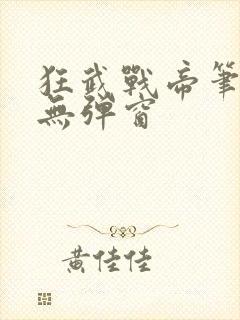 狂武戰帝筆
無彈窗
黃佳佳